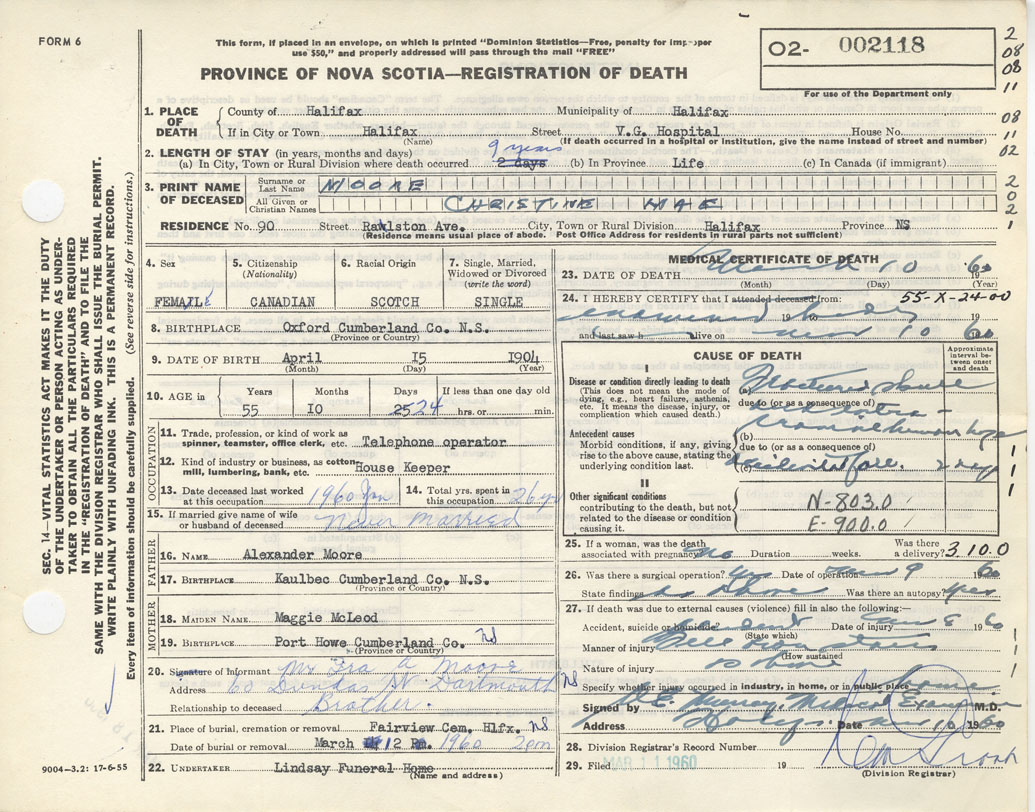 FORM 6
This form, if placed in an envelope, on which is printed "Dominion Statistics—Free, penalty for improper
use $50," and properly addressed will pass through the mail "FREE"
PROVINCE OF NOVA SCOTIA—REGISTRATION OF DEATH
O2- 002118
For use of the Department only
2
08
08
11
08
11
02
2
0
2
1
1. PLACE OF DEATH
County of Halifax Municipality of Halifax
If in City or Town Halifax Street V.G. Hospital House No.
(Name) (If death occurred in a hospital or institution, give the name instead of street and number)
2. LENGTH OF STAY (in years, months and days) 9 years
(a) In City, Town or Rural Division where death occurred 2 days (b) In Province Life (c) In Canada (if immigrant)
3. PRINT NAME OF DECEASED
Surname or Last Name MOORE
All Given or Christian Names CHRISTINE MAE
RESIDENCE No. 90 Street Rawlston Ave. City, Town or Rural Division Halifax Province NS
(Residence means usual place of abode. Post Office Address for residents in rural parts not sufficient)
SEC. 14—VITAL STATISTICS ACT MAKES IT THE DUTY
OF THE UNDERTAKER OR PERSON ACTING AS UNDER-
TAKER TO OBTAIN ALL THE PARTICULARS REQUIRED
IN THE "REGISTRATION OF DEATH" AND TO FILE THE
SAME WITH THE DIVISION REGISTRAR WHO SHALL ISSUE THE BURIAL PERMIT.
WRITE PLAINLY WITH UNFADING INK. THIS IS A PERMANENT RECORD.
Every item of information should be carefully supplied. (See reverse side for instructions.)
4. Sex FEMALE
5. Citizenship (Nationality) CANADIAN
6. Racial Origin SCOTCH
7. Single, Married, Widowed or Divorced (write the word) SINGLE
8. BIRTHPLACE Oxford Cumberland Co. N.S.
(Province or Country)
9. DATE OF BIRTH April 15 1904
(Month) (Day) (Year)
10. AGE in Years Months Days If less than one day old
55 10 25 24 hrs. or min.
OCCUPATION
11. Trade, profession, or kind of work as spinner, teamster, office clerk, etc. Telephone operator
12. Kind of industry or business, as cotton mill, lumbering, bank, etc. House Keeper
13. Date deceased last worked at this occupation 1960 Jan
14. Total yrs. spent in this occupation 26 yr
15. If married give name of wife or husband of deceased Never Married
FATHER
16. NAME Alexander Moore
17. BIRTHPLACE Kaulbec Cumberland Co. N.S.
(Province or Country)
MOTHER
18. MAIDEN NAME Maggie McLeod
19. BIRTHPLACE Port Howe Cumberland Co. NS
(Province or Country)
20. Signature of Informant Mr Ira A Moore
Address 60 Dundas St. Dartmouth NS
Relationship to deceased Brother.
21. Place of burial, cremation or removal Fairview Cem. Hlfx. NS
Date of burial or removal March 12 1960 2pm
22. UNDERTAKER Lindsay Funeral Home
(Name and address)
9004—3.2: 17-6-55
MEDICAL CERTIFICATE OF DEATH
23. DATE OF DEATH March 10 60
(Month) (Day) (Year)
24. I HEREBY CERTIFY that I attended deceased from: 55-X-24-00
examined body 19 to 19
and last saw h alive on 10 1960
CAUSE OF DEATH
Approximate interval between onset and death
I
Disease or condition directly leading to death
(This does not mean the mode of dying, e.g., heart failure, asthenia, etc. It means the disease, injury, or complication which caused death.)
(a) Fractured skull
due to (or as a consequence of)
Antecedent causes
Morbid conditions, if any, giving rise to the above cause, stating the underlying condition last.
(b)
due to (or as a consequence of)
(c) Accidental fall. 2 days
II
Other significant conditions contributing to the death, but not related to the disease or condition causing it.
N-803.0
E-900.0
25. If a woman, was the death associated with pregnancy? No Duration weeks. Was there a delivery? 310.0
26. Was there a surgical operation? yes Date of operation Mar 9 60
State findings as above Was there an autopsy? yes
27. If death was due to external causes (violence) fill in also the following:—
Accident, suicide or homicide? Date of injury Mar 8 1960
(State which)
Manner of injury Fell down stairs
(How sustained
Nature of injury as above
Specify whether injury occurred in industry, in home, or in public place home
Signed by Murray Medical Examiner M.D.
Address Halifax Date Mar 10 1960
28. Division Registrar's Record Number
29. Filed MAR 11 1960 19
(Division Registrar)